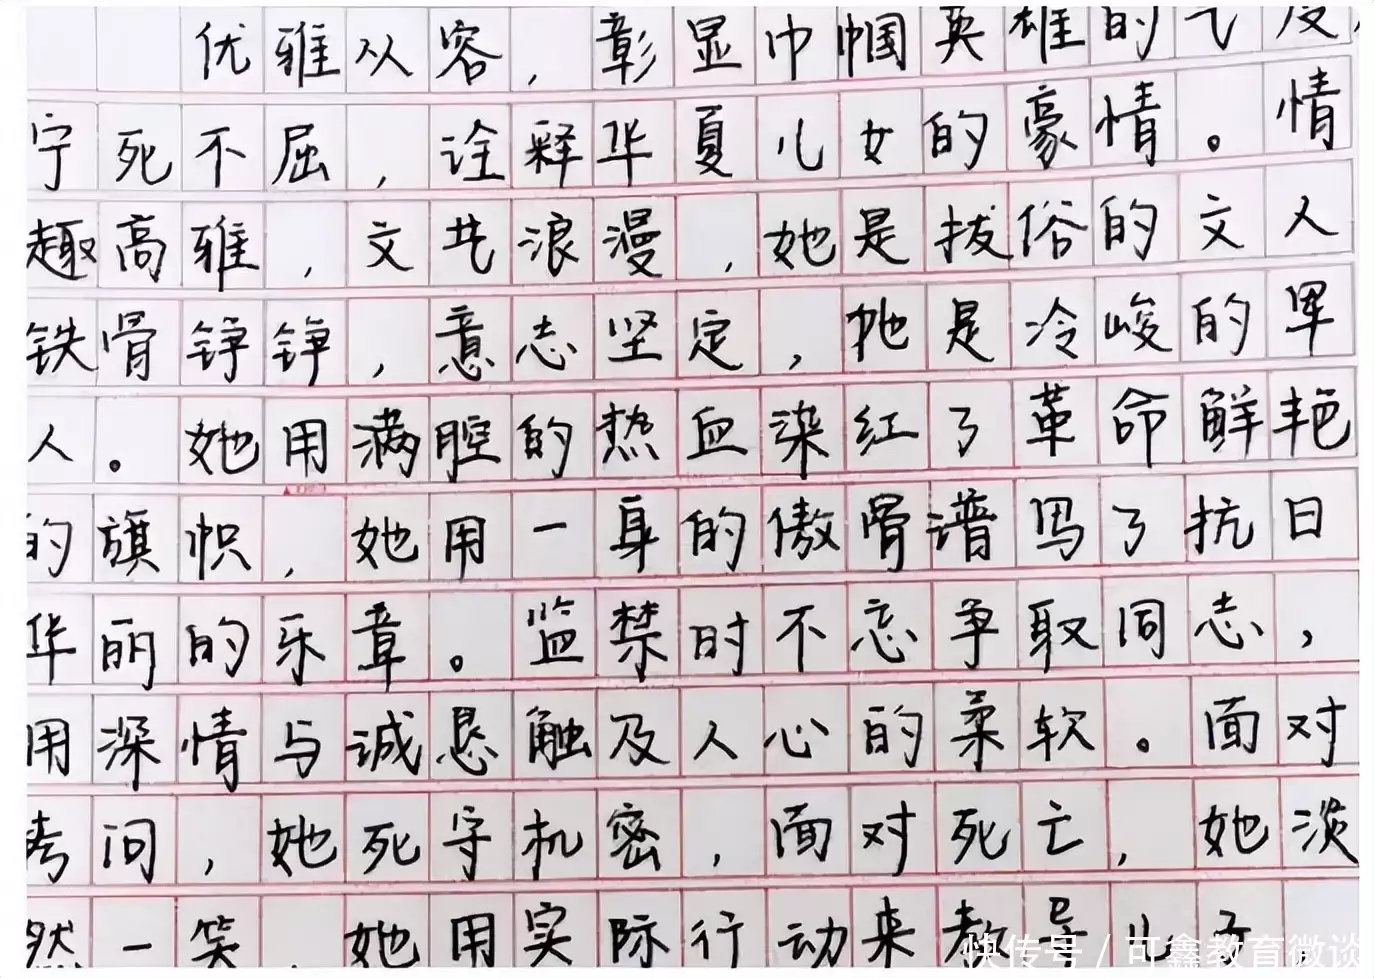 优雅从容，彰显巾帼英雄的气度，
宁死不屈，诠释华夏儿女的豪情。情
趣高雅，文艺浪漫，她是拔俗的文人
铁骨铮铮，意志坚定，她是冷峻的军
人。她用满腔的热血染红了革命鲜艳
的旗帜，她用一身的傲骨谱写了抗日
华丽的乐章。监禁时不忘争取同志，
用深情与诚恳触及人心的柔软。面对
拷问，她死守机密，面对死亡，她淡
然一笑，她用实际行动来教导儿子，
快传号 / 可鑫教育微谈